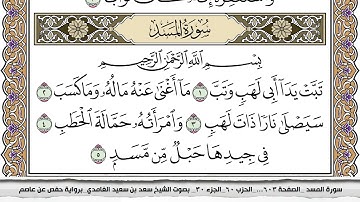 سُورَةُ المَسَدِ
بِسْمِ ٱللَّهِ ٱلرَّحْمَٰنِ ٱلرَّحِيمِ
تَبَّتْ يَدَآ أَبِى لَهَبٍ وَتَبَّ ١ مَآ أَغْنَىٰ عَنْهُ مَالُهُۥ وَمَا كَسَبَ ٢
سَيَصْلَىٰ نَارًا ذَاتَ لَهَبٍ ٣ وَٱمْرَأَتُهُۥ حَمَّالَةَ ٱلْحَطَبِ ٤
فِى جِيدِهَا حَبْلٌ مِّن مَّسَدٍۭ ٥
سورة المسد _الصفحة ٦٠٣ .... الحزب ٦٠_الجزء ٣٠_ بصوت الشيخ سعد بن سعيد الغامدي برواية حفص عن عاصم